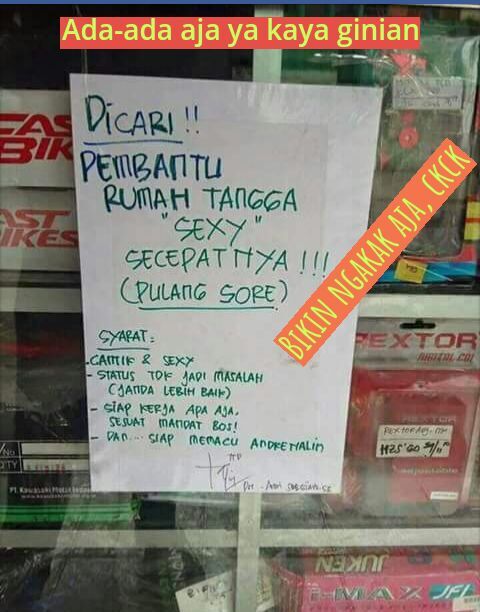 Ada-ada aja ya kaya ginian
DICARI !!
PEMBANTU
RUMAH TANGGA
"SEXY"
SECEPATNYA !!!
(PULANG SORE)
SYARAT :
- CANTIK & SEXY
- STATUS TDK JADI MASALAH
(JANDA LEBIH BAIK)
- SIAP KERJA APA AJA,
SESUAI MANDAT BOS!
- DAN... SIAP MEMACU ANDRENALIN
TTD
BIKIN NGAKAK AJA, CKCK
FAS
BIK
AST
IKES
REXTOR
DIGITAL CDI
REXTOR
adjustable
No
QTY
PT. Kawasaki Motor Indo
JUKEN
i-MAX
JFI